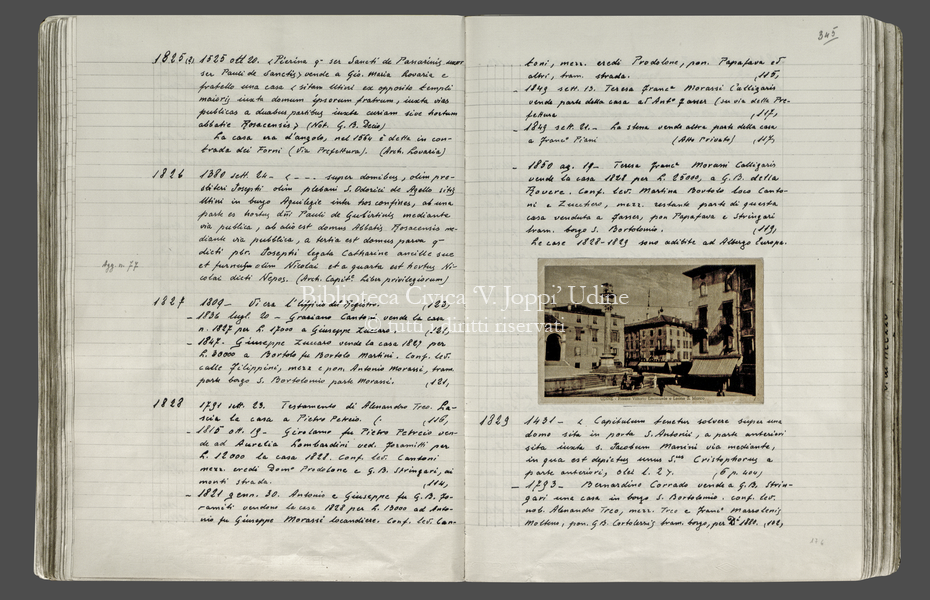 345
1825(2) 1525 ott 20. < Pierina q.m ser Sancti de Passarinis uxor
ser Pauli de Sanctis > vende a Gio. Maria Lovaria e
fratello una casa < sitam Utini ex opposito templi
maioris iuxta domum ipsorum fratrum, iuxta vias
publicas a duabus partibus iuxta curiam sive hortum
abbatie Rosacensis > (Not. G.B. Decio)
La casa era d'angolo, nel 1564 è detta in con-
trada dei Forni (Via Prefettura). (Arch. Lovaria)
1826 1380 sett. 24 - < - - - super domibus, olim pre-
sbiteri Josephi olim plebani S. Odorici de Agello sitis
Utini in burgo Aquilegie intra hos confines, ab una
parte est hortus dni Pauli de Gubertinis mediante
via publica, ab alio est domus Abbatis Rosacensis me-
diante via pubblica, a tertia est domus parva q.m
dicti pbr. Josephi legata Catharine ancille sue
et furnus olim Nicolai et a quarta est hortus Ni-
colai dicti Nepos. (Arch. Capit. Liber privilegiorum)
Agg. n. 77
1827 1809 - Vi era l'Uffizio del Registro. (123)
- 1836 lugl. 20 - Graziano Cantoni vende la casa
n. 1827 per L 17000 a Giuseppe Zuccaro. (121)
- 1847. Giuseppe Zuccaro vende la casa 1827 per
L. 30000 a Bortolo fu Bortolo Martini. Conf. lev.
calle Filippini, mezz e pon. Antonio Morassi, tram.
parte borgo S. Bortolomio parte Morassi. (121)
1828 1791 sett. 23. Testamento di Alessandro Treo. La-
scia la casa a Pietro Petreio. (115)
- 1815 ott. 19 - Girolamo fu Pietro Petreio ven-
de ad Aurelia Lombardini ved. Joramitti per
L. 12000 la casa 1828. Conf. lev. Cantoni
mezz. eredi Dom.o Prodolone e G.B. Stringari, ai
monti strada. (114)
- 1821 genn. 30. Antonio e Giuseppe fu G.B. Jo-
ramitti vendono la casa 1828 per L. 13000 ad Anto-
nio fu Giuseppe Morassi locandiere. Conf. lev. Can-
toni, mezz. eredi Prodolone, pon. Papafava ed
altri, tram. strada. (115)
- 1849 sett. 13. Teresa Franc.a Morassi Calligaris
vende parte della casa ad Ant.o Fasser (su via della Pre-
fettura (117)
- 1849 sett. 21. - La stessa vende altra parte della casa
a Franc.o Piani (Atto Privato) (117)
- 1850 ag. 19 - Teresa Franc.a Morassi Calligaris
vende la casa 1828 per L. 25000, a G.B. della
Rovere. Conf. lev. Martina Bortolo loco Canto-
ni e Zucchero, mezz. restante parte di questa
casa venduta a Fasser, pon Papafava e Stringari
tram. borgo S. Bortolomio. (119)
Le case 1828-1829 sono adibite ad Albergo Europa.
Biblioteca Civica 'V. Joppi' Udine
© tutti i diritti riservati
1829 1431 - < Capitulum tenetur solvere super una
domo sita in porta S. Antonii, a parte anteriori
sita iuxta s. Jacobum Manini via mediante,
in qua est depictus unus S.us Cristophorus a
parte anteriori, olei l. 27. (6 p. 404)
- 1793 - Bernardino Corrado vende a G.B. Strin-
gari une casa in borgo S. Bortolomio. conf. lev.
nob. Alessandro Treo, mezz. Treo e Franc.o Mazzolenis
Molteno, pon. G.B. Cortolezzis tram. borgo, per D.i 1820. (112)